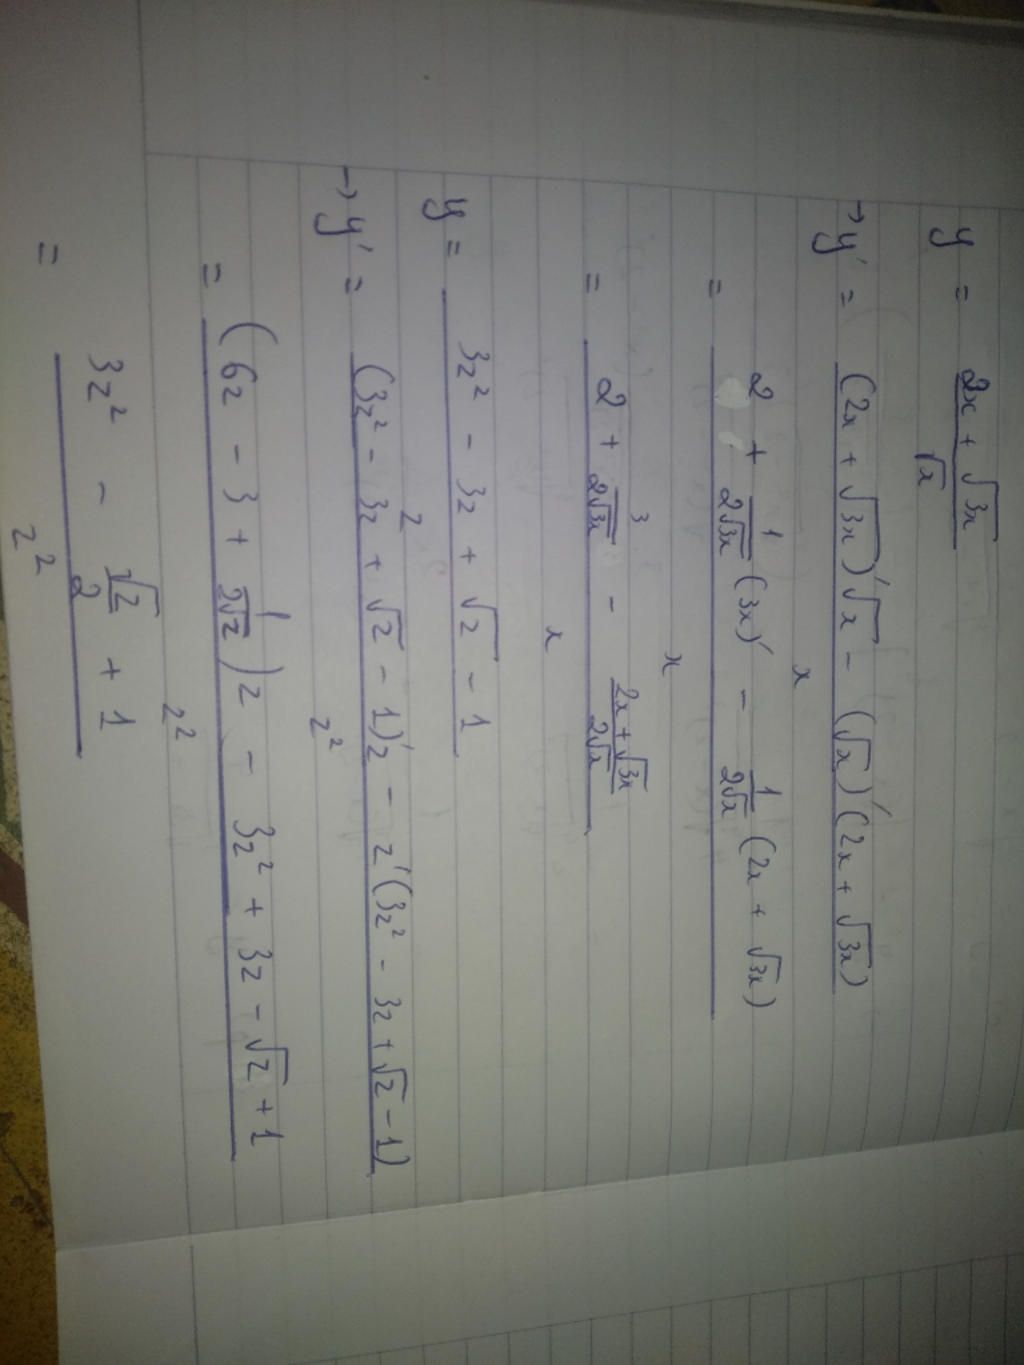 y = \frac{2x + \sqrt{3x}}{\sqrt{x}}
→ y' = \frac{(2x + \sqrt{3x})'\sqrt{x} - (\sqrt{x})'(2x + \sqrt{3x})}{x}
= \frac{2 + \frac{1}{2\sqrt{3x}}(3x)' - \frac{1}{2\sqrt{x}}(2x + \sqrt{3x})}{x}
= \frac{2 + \frac{3}{2\sqrt{3x}} - \frac{2x + \sqrt{3x}}{2\sqrt{x}}}{x}
y = \frac{3z^2 - 3z + \sqrt{z} - 1}{z}
→ y' = \frac{(3z^2 - 3z + \sqrt{z} - 1)'z - z'(3z^2 - 3z + \sqrt{z} - 1)}{z^2}
= \frac{(6z - 3 + \frac{1}{2\sqrt{z}})z - 3z^2 + 3z - \sqrt{z} + 1}{z^2}
= \frac{3z^2 - \frac{\sqrt{z}}{2} + 1}{z^2}